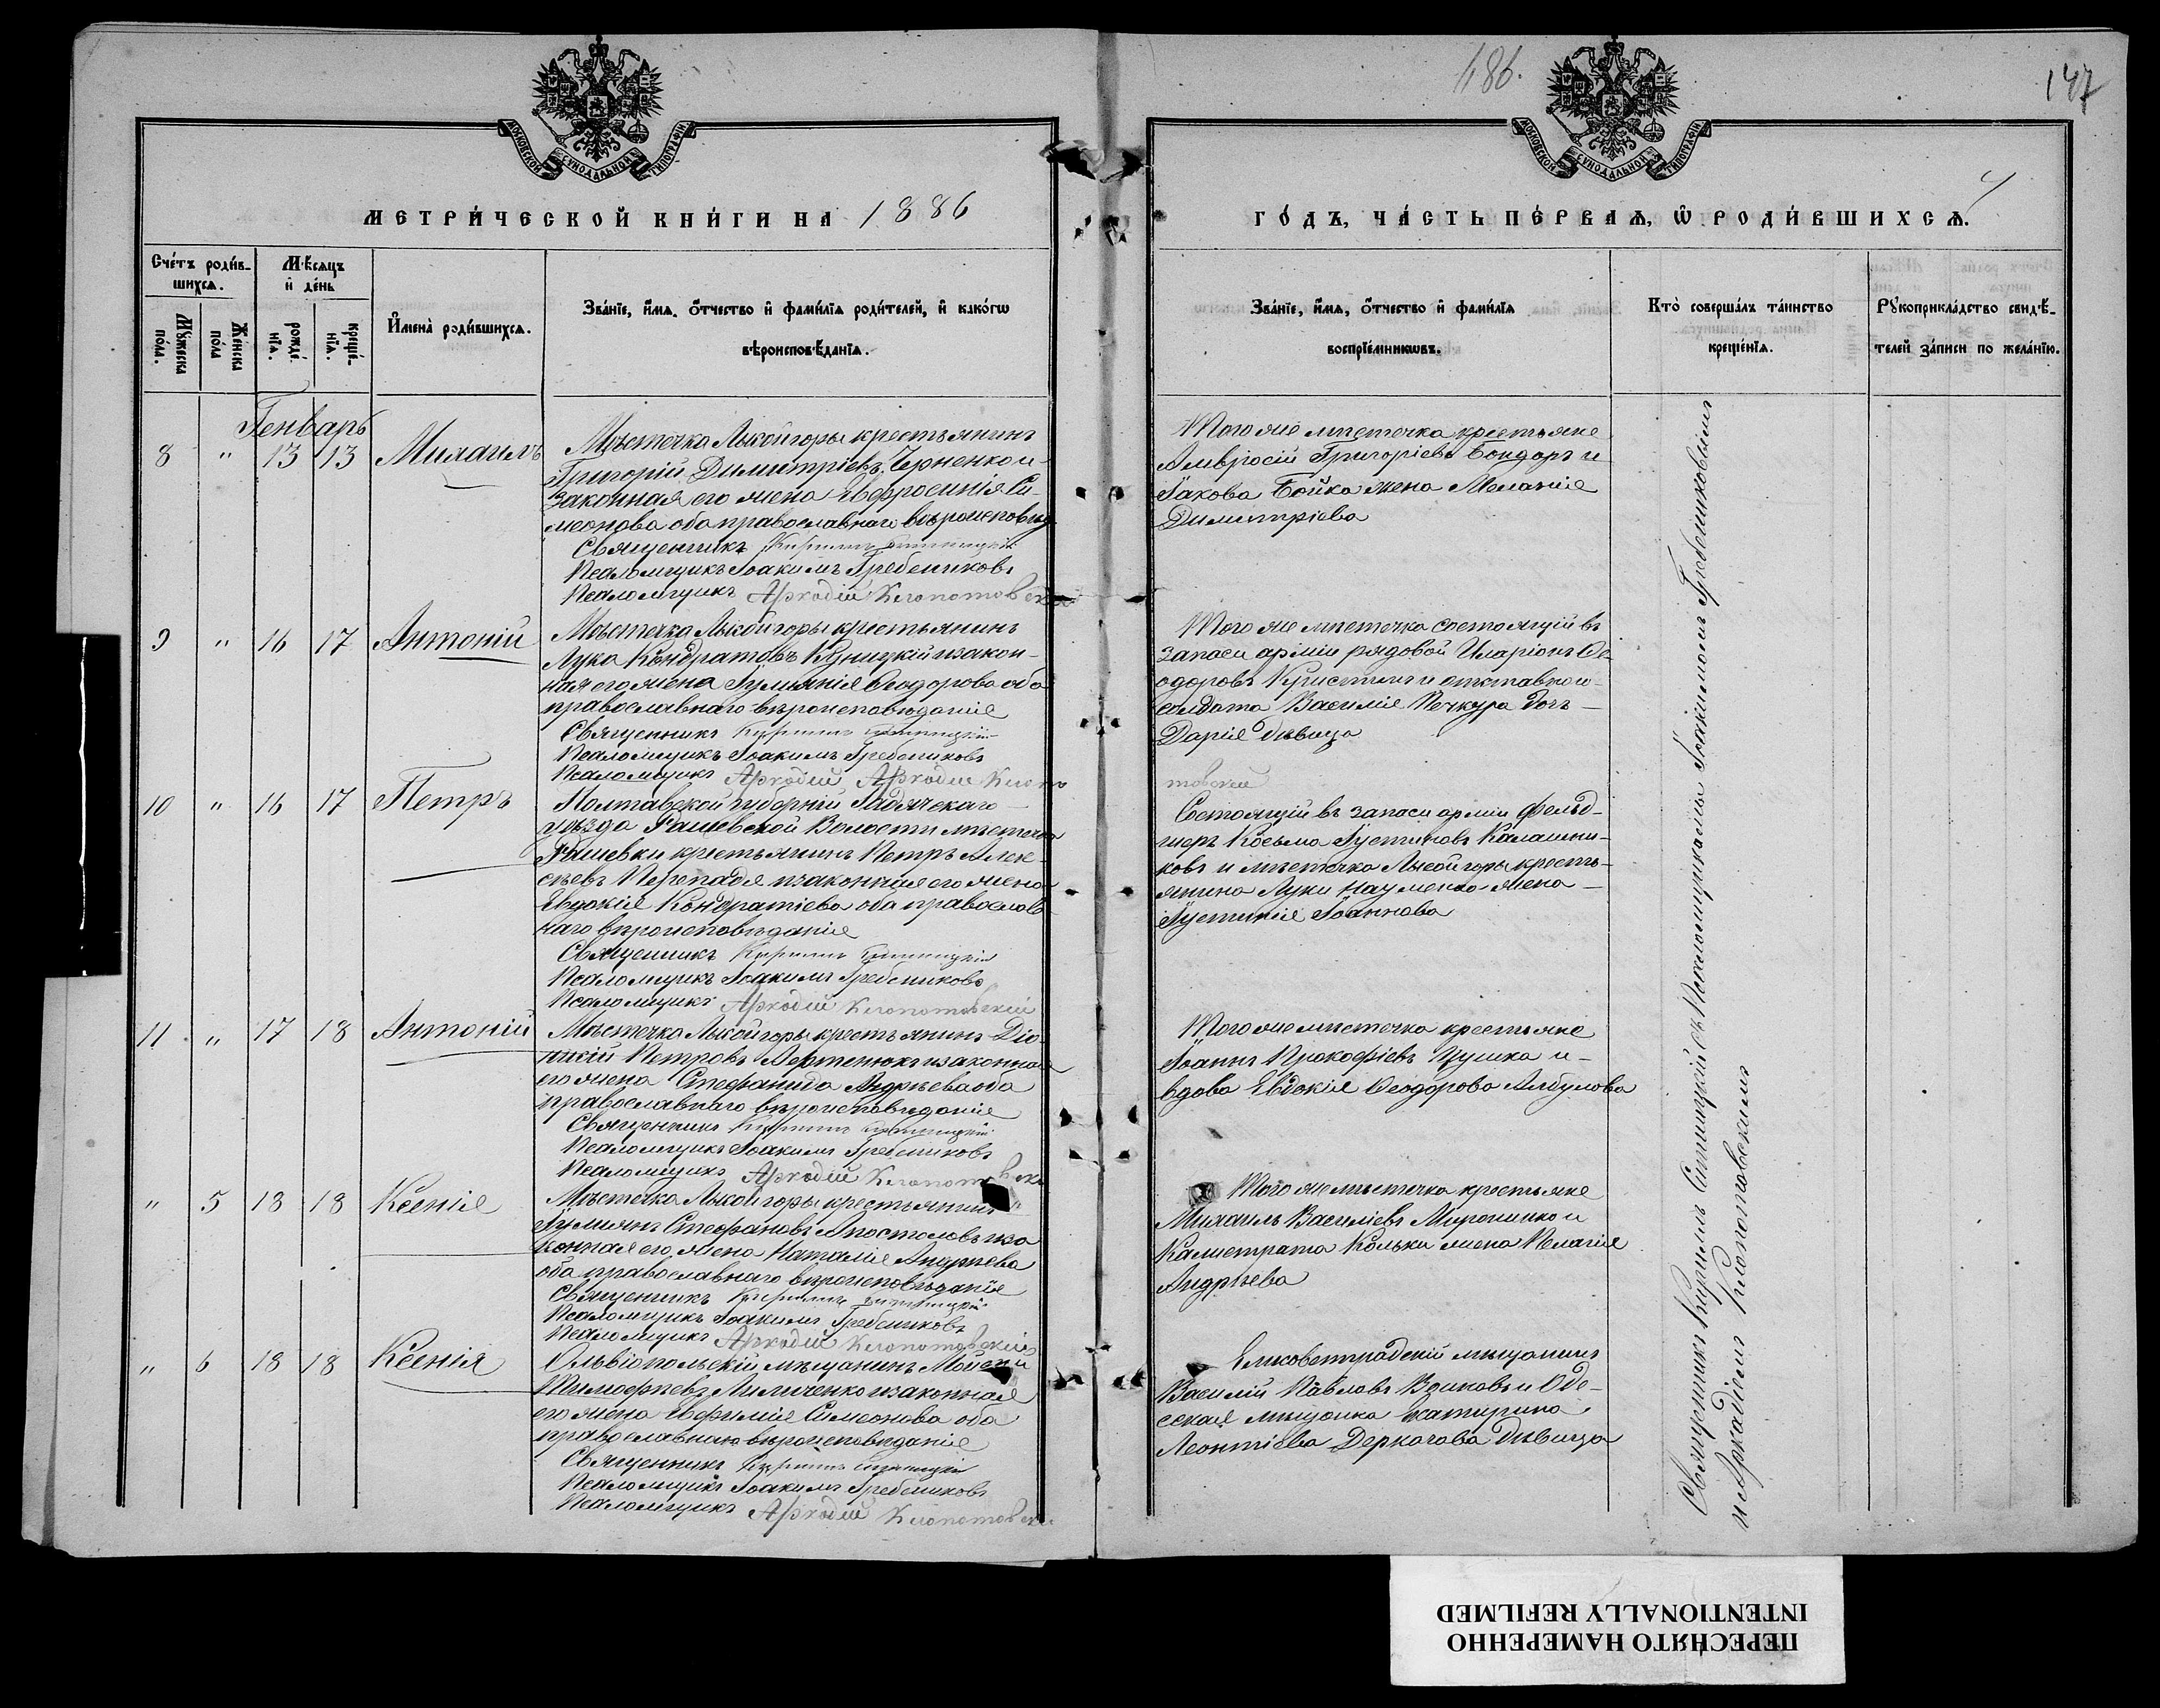 486.
147
4
МОСКОВСКОЙ СѴНОДАЛЬНОЙ ТИПОГРАФІИ
МОСКОВСКОЙ СѴНОДАЛЬНОЙ ТИПОГРАФІИ
МЕТРИ́ЧЕСКОЙ КНИ́ГИ НА 1886
ГО́ДЪ, ЧА́СТЬ ПЕ́РВАѦ, Ѡ҆ РОДИ́ВШИХСѦ.
Сче́тъ роди́в-
шихсѧ.
Мѣ́сѧцъ
и҆ де́нь
Мꙋ́жеска
по́ла.
Же́нска
по́ла
рожде́-
нїѧ.
креще́-
нїѧ.
И҆мена̀ роди́вшихсѧ.
Зва́нїе, и҆́мѧ, ѻ҆́тчество и҆ фами́лїѧ роди́телей, и҆ како́гѡ
вѣроисповѣ́данїѧ.
Зва́нїе, и҆́мѧ, ѻ҆́тчество и҆ фами́лїѧ
воспрїе́мникѡвъ.
Кто̀ соверша́лъ та́инство
креще́нїѧ.
Рꙋкоприкла́дство свидѣ́-
телей за́писи по жела́нїю.
Генварь
8 " 13 13 Михаилъ
Мѣстечка Лысойгоры крестьянинъ
Григорій Димитріевъ Черненко и
законная его жена Евфросинія Си-
меонова оба православнаго вѣроисповѣд
Священникъ Кириллъ Ситницкій
Псаломщикъ Іоакимъ Гребенниковъ
Псаломщикъ Аркадій Клопотовскій
Того же мѣстечка крестьяне
Амвросій Григоріевъ Бондарь и
Іакова Бойка жена Меланія
Димитріева
9 " 16 17 Антоній
Мѣстечка Лысойгоры крестьянинъ
Лука Кондратовъ Куницкій и закон-
ная его жена Іуліанія Ѳеодорова оба
православнаго вѣроисповѣданія
Священникъ Кириллъ Ситницкій
Псаломщикъ Іоакимъ Гребенниковъ
Псаломщикъ Аркадій Аркадій Клопо
Того же мѣстечка состоящій въ
запаси арміи рядовой Иларіонъ Ѳе-
одоровъ и отставного
солдата Василія Печкура дочь
Дарія дѣвица
товскій
10 " 16 17 Петръ
Полтавской губерніи Гадячскаго
уѣзда Рашевской Волости мѣстечка
Рашевки крестьянинъ Петръ Алек-
сѣевъ Перепадя и законная его жена
Евдокія Кондратіева оба православ-
наго вѣроисповѣданія
Священникъ Кириллъ Ситницкій
Псаломщикъ Іоакимъ Гребенниковъ
Псаломщикъ Аркадій Клопотовскій
Состоящій въ запаси арміи фельд-
шеръ Косьма Іустиновъ Калашни-
ковъ и мѣстечка Лысойгоры кресть-
янина Луки Науменко жена
Іустинія Іоаннова
11 " 17 18 Антоній
Мѣстечка Лысойгоры крестьянинъ Діо-
нисій Петровъ и законная
его жена Стефанида Андреева оба
православнаго вѣроисповѣданія
Священникъ Кириллъ Ситницкій
Псаломщикъ Іоакимъ Гребенниковъ
Псаломщикъ Аркадій Клопотовскі
Того же мѣстечка крестьяне
Іоаннъ Прокофіевъ и
вдова Евдокія Ѳеодорова Албулова
" 5 18 18 Ксенія
Мѣстечка Лысойгоры крестьянинъ
Іуліянъ Стефановъ Апостоловъ и за
конная его жена Наталія Андреева
оба православнаго вѣроисповѣданія
Священникъ Кириллъ Ситницкій
Псаломщикъ Іоакимъ Гребенниковъ
Псаломщикъ Аркадій Клопотовскій
Того же мѣстечка крестьяне
Михаилъ Василіевъ и
Калистрата Кольки жена Пелагія
Андреева
" 6 18 18 Ксенія
Ольвіопольскій мѣщанинъ Мойсей
Тимофѣевъ и законная
его жена Евфимія Симеонова оба
православнаго вѣроисповѣданія
Священникъ Кириллъ Ситницкій
Псаломщикъ Іоакимъ Гребенниковъ
Псаломщикъ Аркадій Клопотовск
Елисоветградскій мѣщанинъ
Василій Павловъ Волковъ и Оде-
сская мѣщанка Екатерина
Леонтіева Деркачова дѣвица
Священникъ Кириллъ Ситницкій съ Псаломщиками Іоакимомъ Гребенниковымъ
и Аркадіемъ Клопотовскимъ
ПЕРЕСНЯТО НАМЕРЕННО
INTENTIONALLY REFILMED